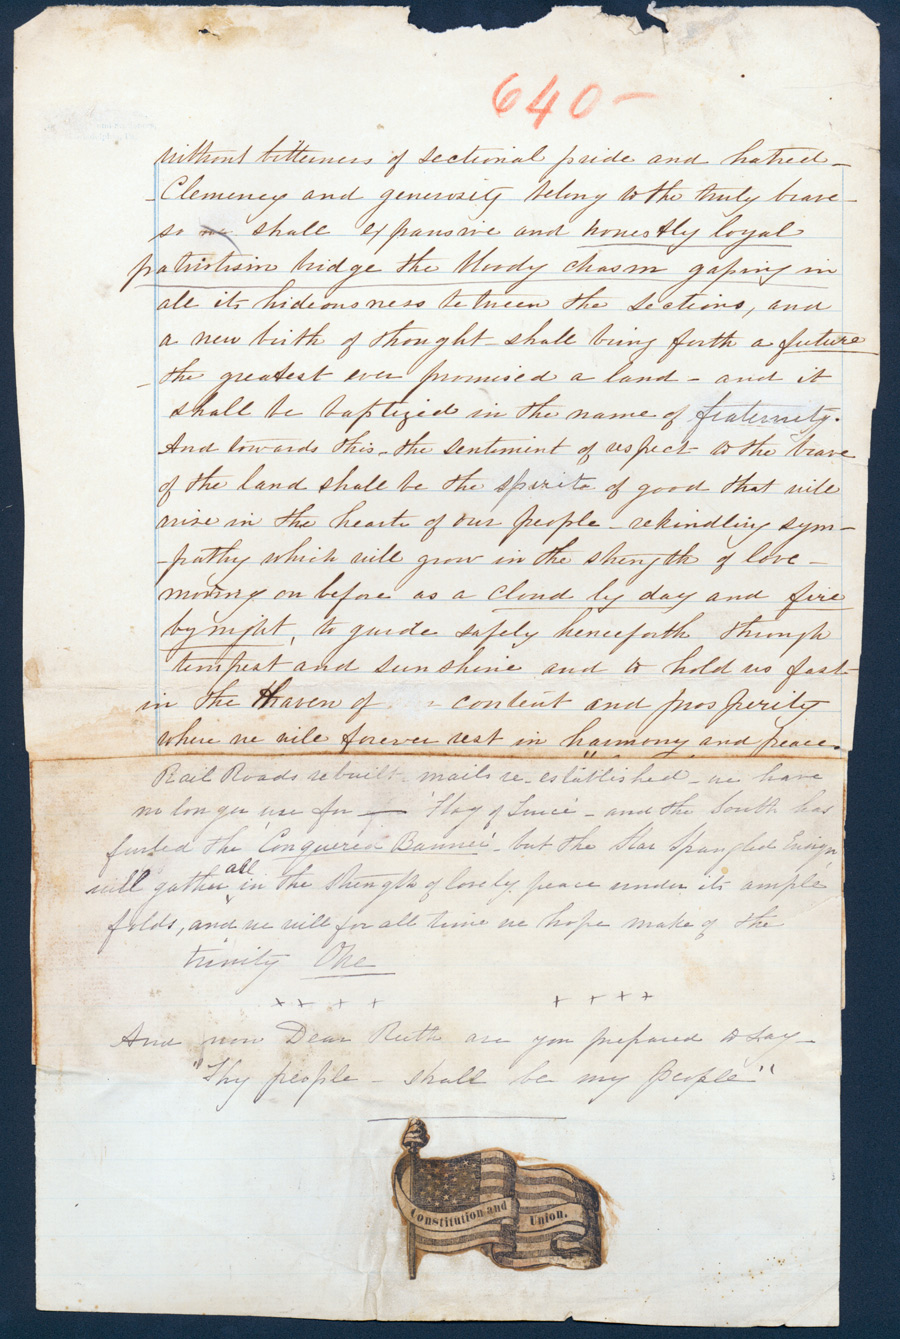 640-
without bitterness of sectional pride and hatred -
- Clemency and generosity belong to the truly brave -
so shall expansive and honestly loyal
patriotism bridge the bloody chasm gaping in
all its hideousness between the sections, and
a new birth of thought - shall bring forth a future
- the greatest ever promised a land - and it
shall be baptized in the name of fraternity.
And towards this - the sentiment of respect to the brave
of the land shall be the spirits of good that will
arise in the hearts of our people - rekindling sym-
- pathy which will grow in the strength of love -
moving on before as a cloud by day and fire
by night, to guide safely henceforth through
tempest and sunshine and to hold us fast
in the Haven of content and prosperity
where we will forever rest in harmony and peace.
Rail Roads rebuilt - mails re-established - we have
no longer use for - 'Flag of Truce' - and the South has
furled the 'Conquered Banner' - but the Star Spangled Ensign
will gather all in the strength of lovely peace under its ample
folds, and we will for all time we hope make of the
trinity One
x x x x + + + +
And now Dear Ruth are you prepared to say -
"Thy people - shall be my people"
Constitution and Union.